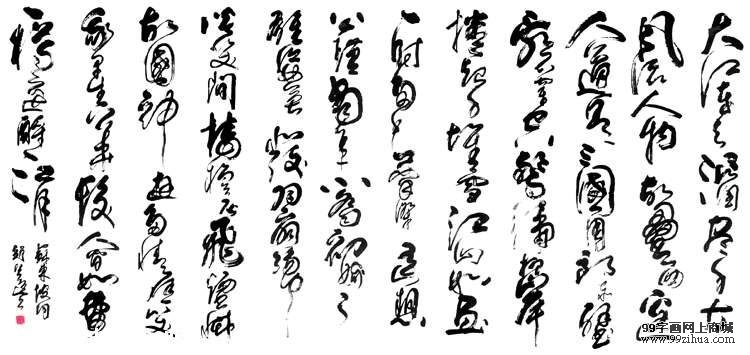 大江东去浪淘尽千古
風流人物故壘西边
人道是三國周郎赤壁
驚濤拍岸
捲起千堆雪江山如画
一时多少豪杰遥想
公瑾當年小喬初嫁了
雄姿英发羽扇綸巾
谈笑间樯橹灰飛煙滅
故國神遊多情应笑
我早生华发人间如夢
一樽还酹江月
蘇東坡词
99字画网上商城
www.99zihua.com